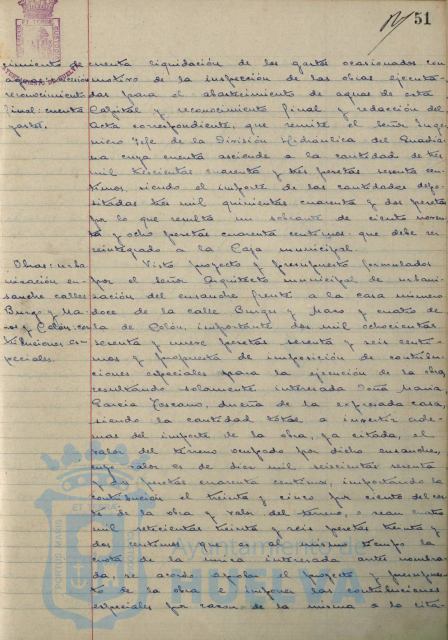 51
cimiento de
aguas: inspección
reconocimiento
final: cuenta
gastos.
cuenta liquidación de los gastos ocasionados con
motivo de la inspección de las obras ejecuta-
das para el abastecimiento de aguas de esta
Capital y reconocimiento final y redacción del
Acta correspondiente, que remite el señor Inge-
niero Jefe de la División Hidráulica del Guadia-
na cuya cuenta asciende a la cantidad de tres
mil trescientas cuarenta y tres pesetas sesenta cen-
timos, siendo el importe de las cantidades depo-
sitadas tres mil quinientas cuarenta y dos pesetas
por lo que resulta un sobrante de ciento noven-
ta y ocho pesetas cuarenta centimos, que debe ser
reintegrado a la Caja municipal.
Obras: urba-
nización en-
sanche calles
Burgo y Ma-
zo y Colón: con
tribuciones es-
peciales.
Visto proyecto y presupuesto formulados
por el señor Arquitecto municipal de urbani-
zación del ensanche frente a la casa número
doce de la calle Burgo y Mazo y cuatro de
la de Colón, importante dos mil ochocientas
sesenta y nueve pesetas setenta y seis centi-
mos y propuesta de imposición de contribu-
ciones especiales para la ejecución de la obra,
resultando solamente interesada Doña María
Garcia Toscano, dueña de la expresada casa,
siendo la cantidad total a invertir ade-
mas del importe de la obra, ya citada, el
valor del terreno ocupado por dicho ensanche,
cuyo valor es de diez mil seiscientas sesenta
y dos pesetas cuarenta centimos, importando la
contribución el treinta y cinco por ciento del cos-
te de la obra y valor del terreno, o sean cuatro
mil setecientas treinta y seis pesetas treinta y
dos centimos que es al mismo tiempo la
cuota de la única interesada antes nombra-
da, se acordó aprobar el proyecto y presupues-
to de la obra e imponer las contribuciones
especiales por razon de la misma a la cita-
Ayuntamiento de
HUELVA